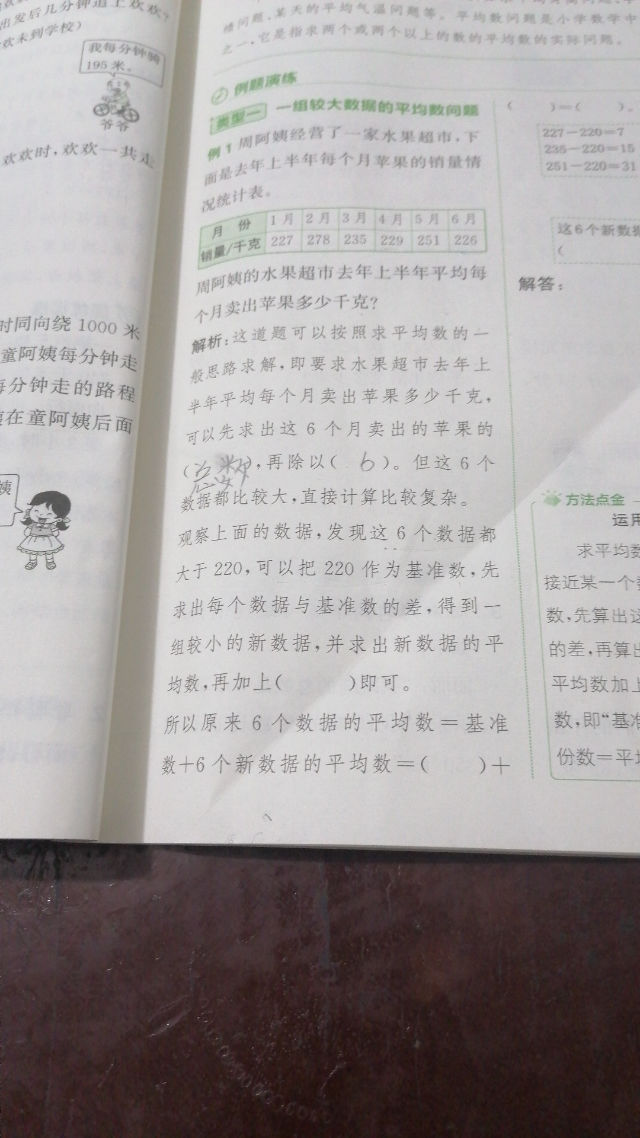 出发后几分钟追上欢欢?
欢未到学校)
我每分钟骑
195米。
爷爷
欢欢时,欢欢一共走
时同向绕1000米
童阿姨每分钟走
每分钟走的路程
在童阿姨后面
姨
槽问题、某天的平均气温问题等。平均数问题是小学数学中
之一,它是指求两个或两个以上的数的平均数的实际问题。
例题演练
类型一 一组较大数据的平均数问题
例1 周阿姨经营了一家水果超市,下
面是去年上半年每个月苹果的销量情
况统计表。
月 份 1月 2月 3月 4月 5月 6月
销量/千克 227 278 235 229 251 226
周阿姨的水果超市去年上半年平均每
个月卖出苹果多少千克?
解析:这道题可以按照求平均数的一
般思路求解,即要求水果超市去年上
半年平均每个月卖出苹果多少千克,
可以先求出这6个月卖出的苹果的
(总数),再除以( 6 )。但这6个
数据都比较大,直接计算比较复杂。
观察上面的数据,发现这6个数据都
大于220,可以把220作为基准数,先
求出每个数据与基准数的差,得到一
组较小的新数据,并求出新数据的平
均数,再加上( )即可。
所以原来6个数据的平均数=基准
数+6个新数据的平均数=( )+
( )=( )。
227-220=7
235-220=15
251-220=31
这6个新数据
(
解答:
方法点金
运用
求平均数
接近某一个数
数,先算出这
的差,再算出
平均数加上
数,即“基准
份数=平均